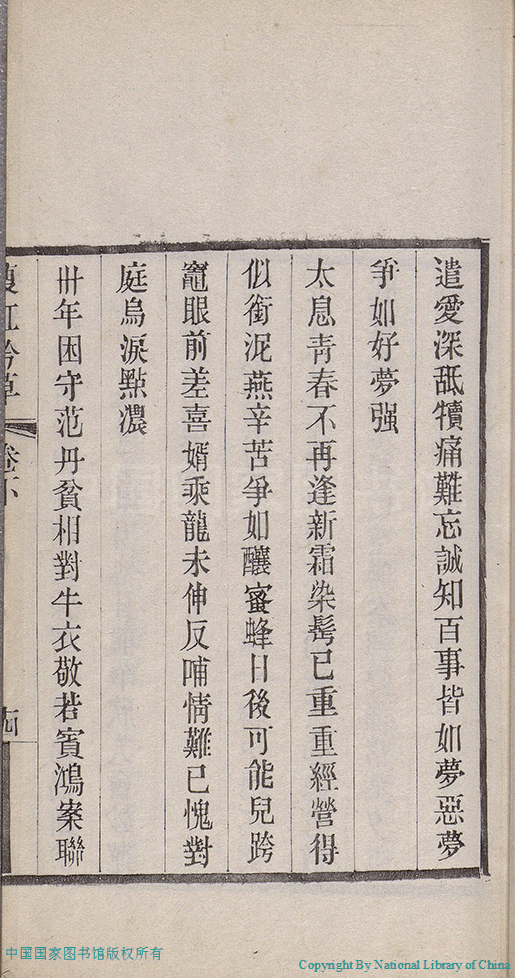 遣愛深舐犢痛難忘誠知百事皆如夢惡夢
爭如好夢强
太息靑春不再逢新霜染髩已重重經營得
似銜泥燕辛苦爭如釀蜜蜂日後可能兒跨
竈眼前差喜婿乘龍未伸反哺情難已愧對
庭烏淚點濃
卌年困守范丹貧相對牛衣敬若賓鴻案聯
卷下
中国国家图书馆版权所有
Copyright By National Library of China